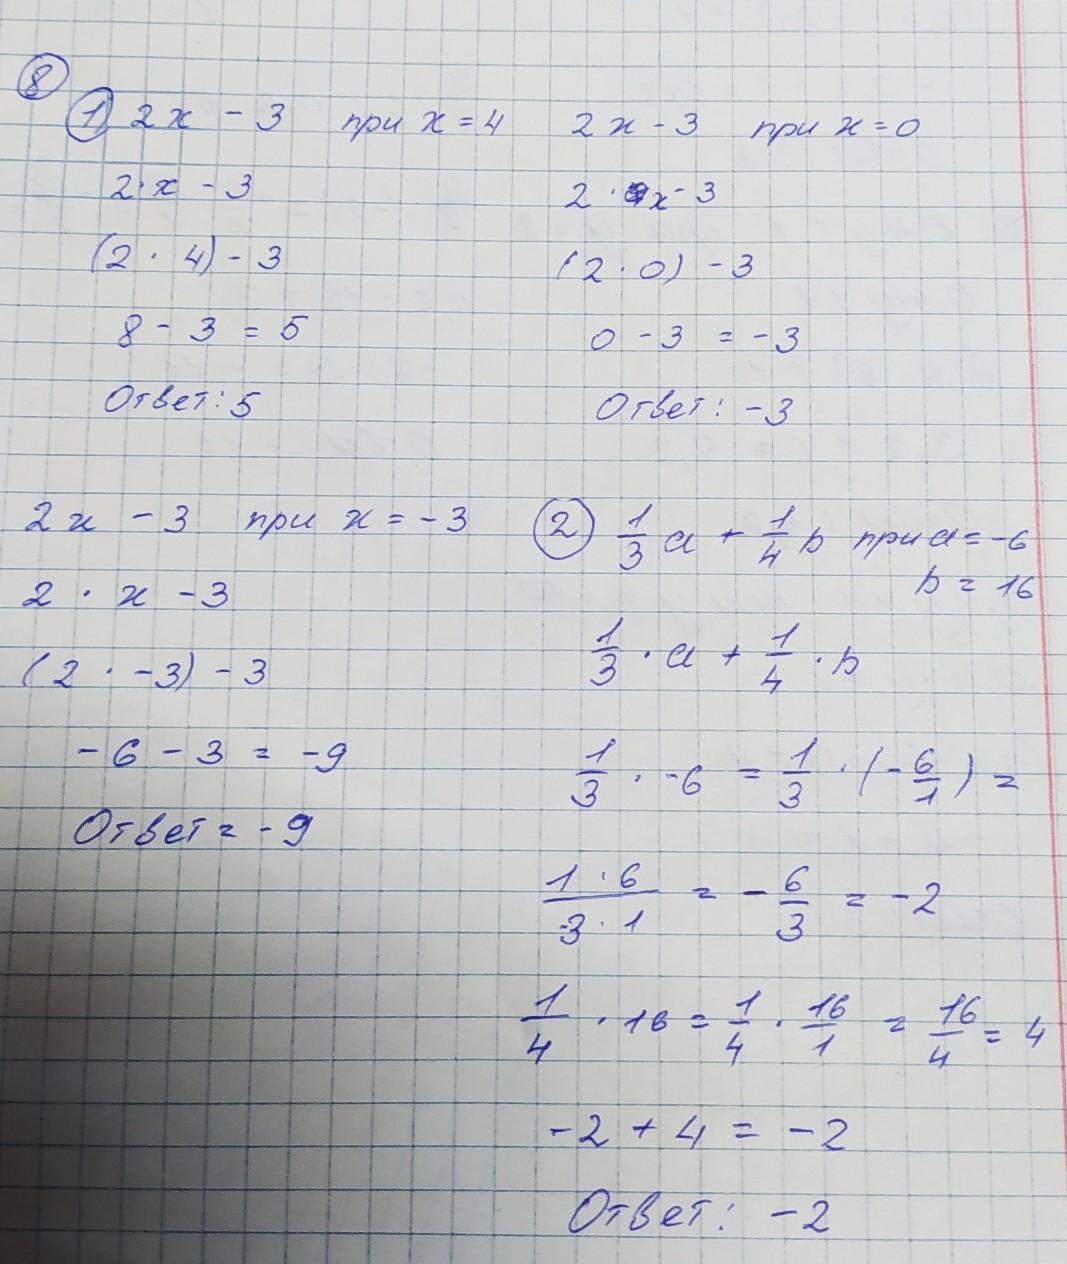 8
1 2x - 3 при x = 4
2·x - 3
(2 · 4) - 3
8 - 3 = 5
Ответ: 5
2x - 3 при x = 0
2 · x - 3
(2 · 0) - 3
0 - 3 = -3
Ответ: -3
2x - 3 при x = -3
2 · x - 3
(2 · -3) - 3
-6 - 3 = -9
Ответ = -9
2 1/3 a + 1/4 b при a = -6
b = 16
1/3 · a + 1/4 · b
1/3 · -6 = 1/3 · (-6/1) =
1 · 6 / -3 · 1 = -6/3 = -2
1/4 · 16 = 1/4 · 16/1 = 16/4 = 4
-2 + 4 = -2
Ответ: -2